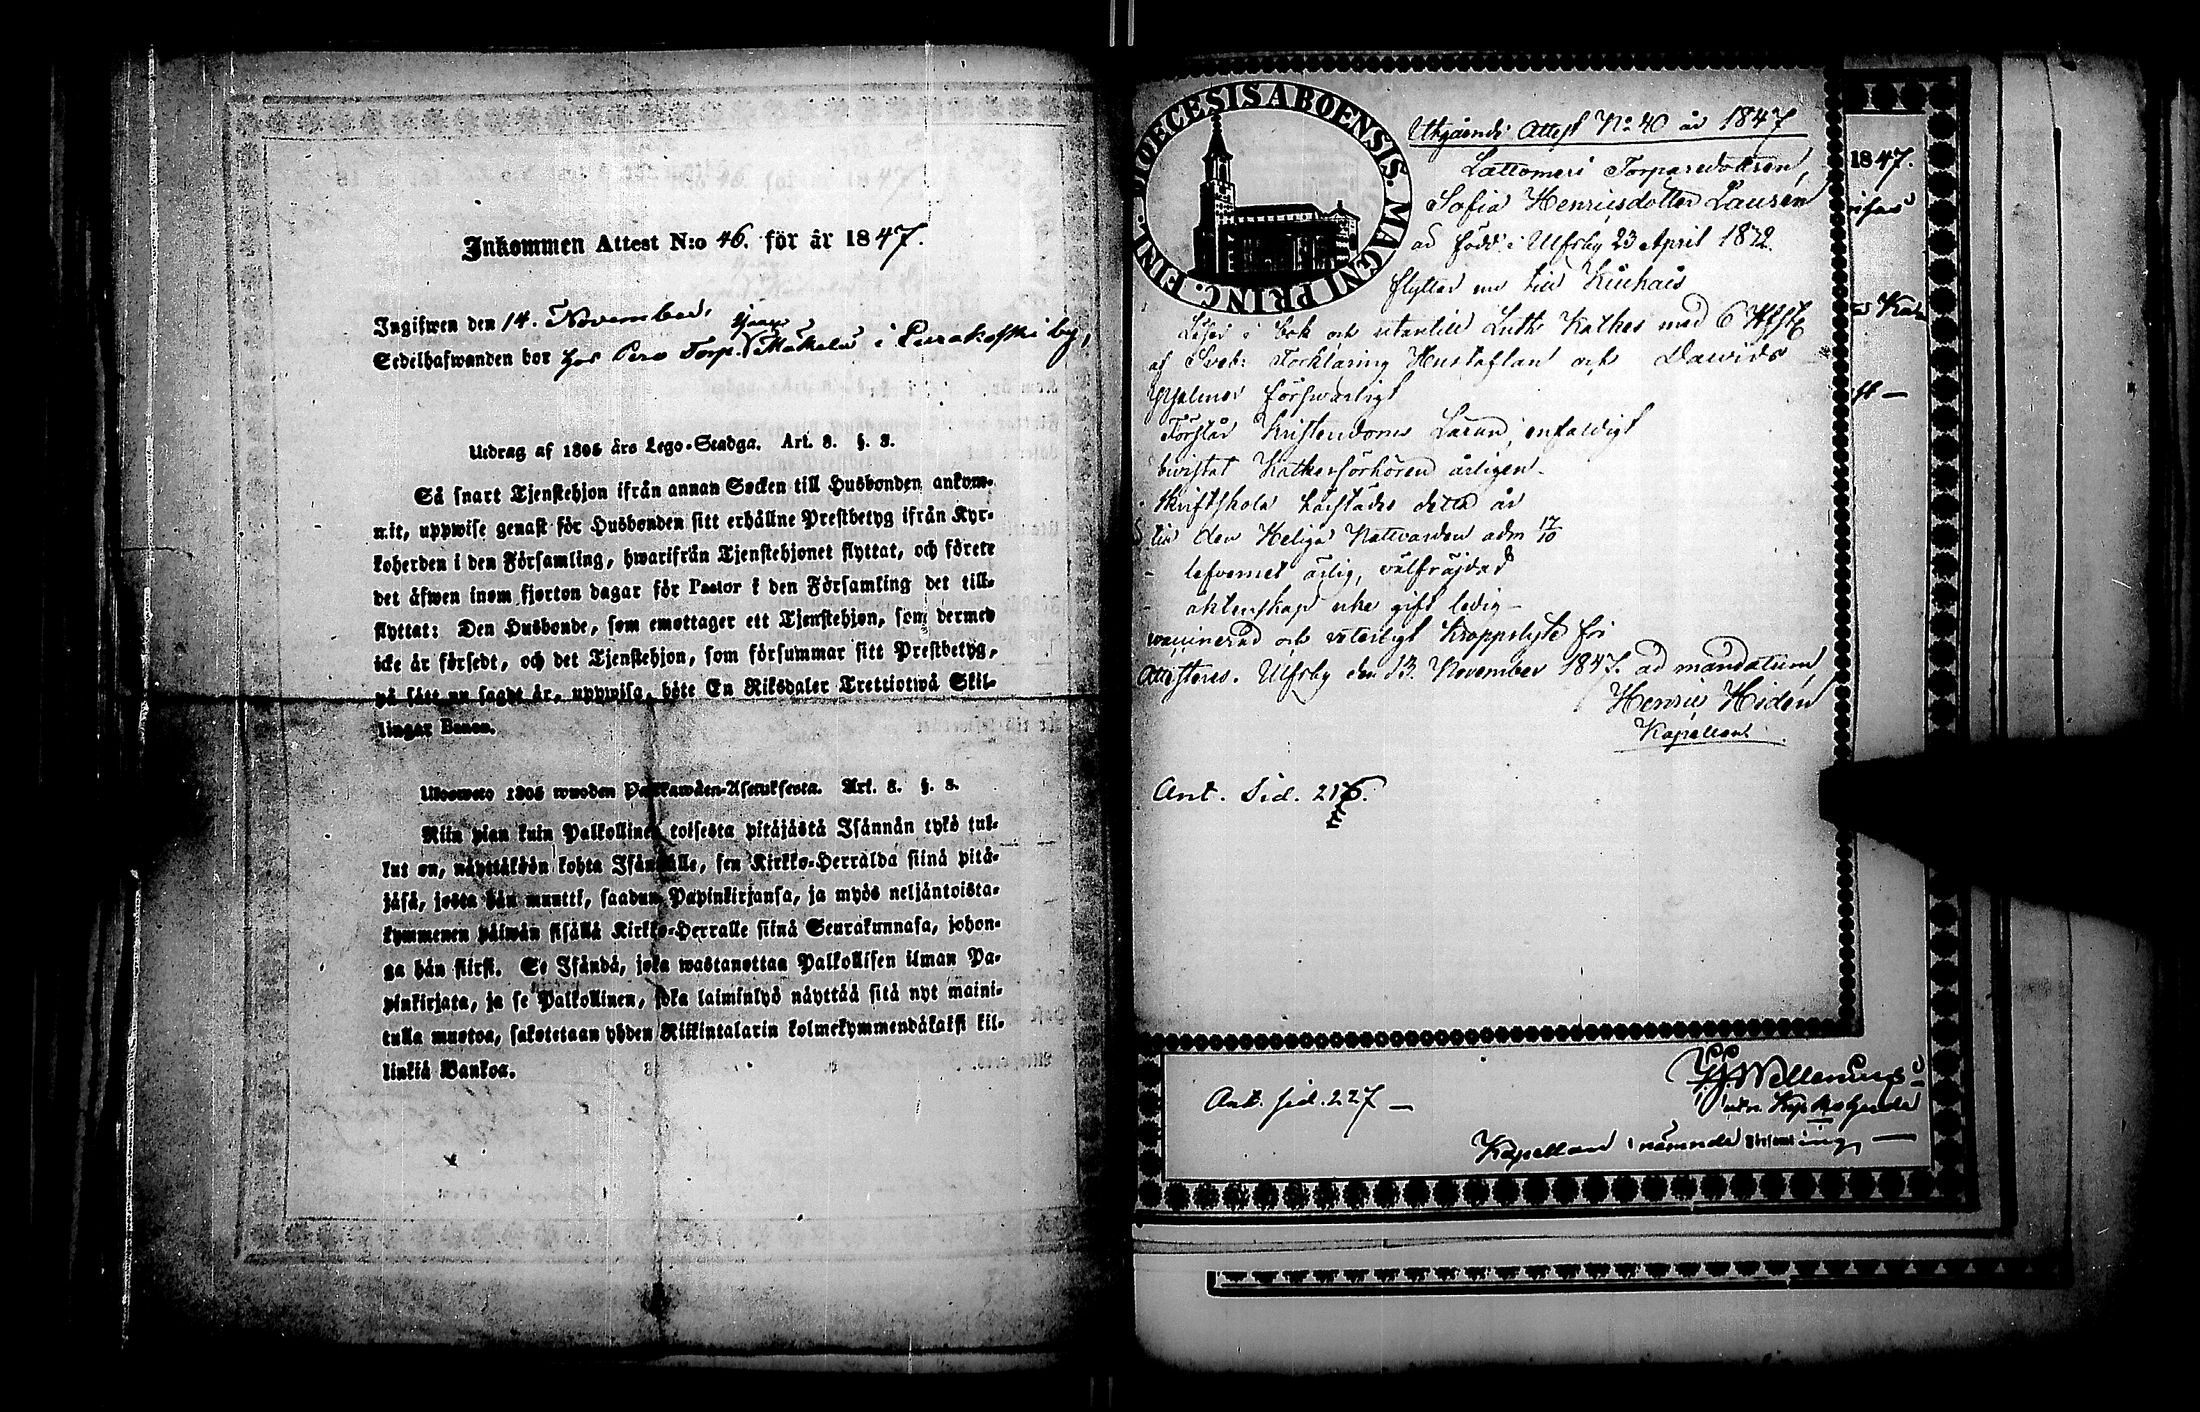 Inkommen Attest N:o 46. för år 1847.
Ingifwen den 14. November.
Sedelhafwanden bor hos Pero Torp. Mäkelä i Purakoski by,
Utdrag af 1805 års Lego-Stadga. Art. 8. §. 8.
Så snart Tjenstehjon ifrån annan Socken till Husbonden ankom-
mit, uppwise genast för Husbonden sitt erhållne Prestbetyg ifrån Kyr-
koherden i den Församling, hwarifrån Tjenstehjonet flyttat, och förete
det äfwen inom fjorton dagar för Pastor i den Församling det till-
flyttat: Den Husbonde, som emottager ett Tjenstehjon, som dermed
icke är försedt, och det Tjenstehjon, som försummar sitt Prestbetyg,
på sätt nu sagdt är, uppwisa, böte En Riksdaler Trettiotwå Skil-
lingar Banco.
Ulosweto 1805 wuoden Palkkawäen-Asetuksesta. Art. 8. §. 8.
Niin pian kuin Palkollinen toisesta pitäjästä Isännän tykö tul-
lut on, näyttäköön kohta Isännälle, sen Kirkko-Herralda siinä pitä-
jäsä, josta hän muutti, saadun Papinkirjansa, ja myös neljäntoista-
kymmenen päiwän sisällä Kirkko-Herralle siinä Seurakunnasa, johon-
ga hän siirsi. Se Isändä, joka wastanottaa Palkollisen ilman Pa-
pinkirjata, ja se Palkollinen, joka laiminlyö näyttää sitä nyt maini-
tulla muotoa, sakotetaan yhden Riikintalarin kolmekymmendäkaksi kil-
linkiä Bankoa.
DIOECESIS ABOENSIS. MAGNI PRINC. FINL.
Utgående Attest No 40 år 1847
Lattomeri Torparedottren,
Sofia Henricsdotter Laurén
är född i Ulfsby 23 April 1832.
flyttar nu till Kiukais
Läser i bok och utantill Luth: Kathes med 6 Hfst
af Sveb: Förklaring Hustaflan och Davids
Psalmer försvarligt
Förstår Kristendoms Läran, enfaldigt
bevistat Kathesförhören årligen -
Skriftskola härstädes detta år
till den Heliga Nattvarden adm 17/10
- lefvernet ärlig, välfräjdad
- äktenskap icke gift ledig -
vaccinerad och veterligt kroppslyte fri
Attesteres. Ulfsby den 13. November 1847. ad mandatum,
Henric Hidén
Kapellan
Ant. Sid. 216.
1847.
Ant. sid. 227 —
Kapellan i nämnde Församling —